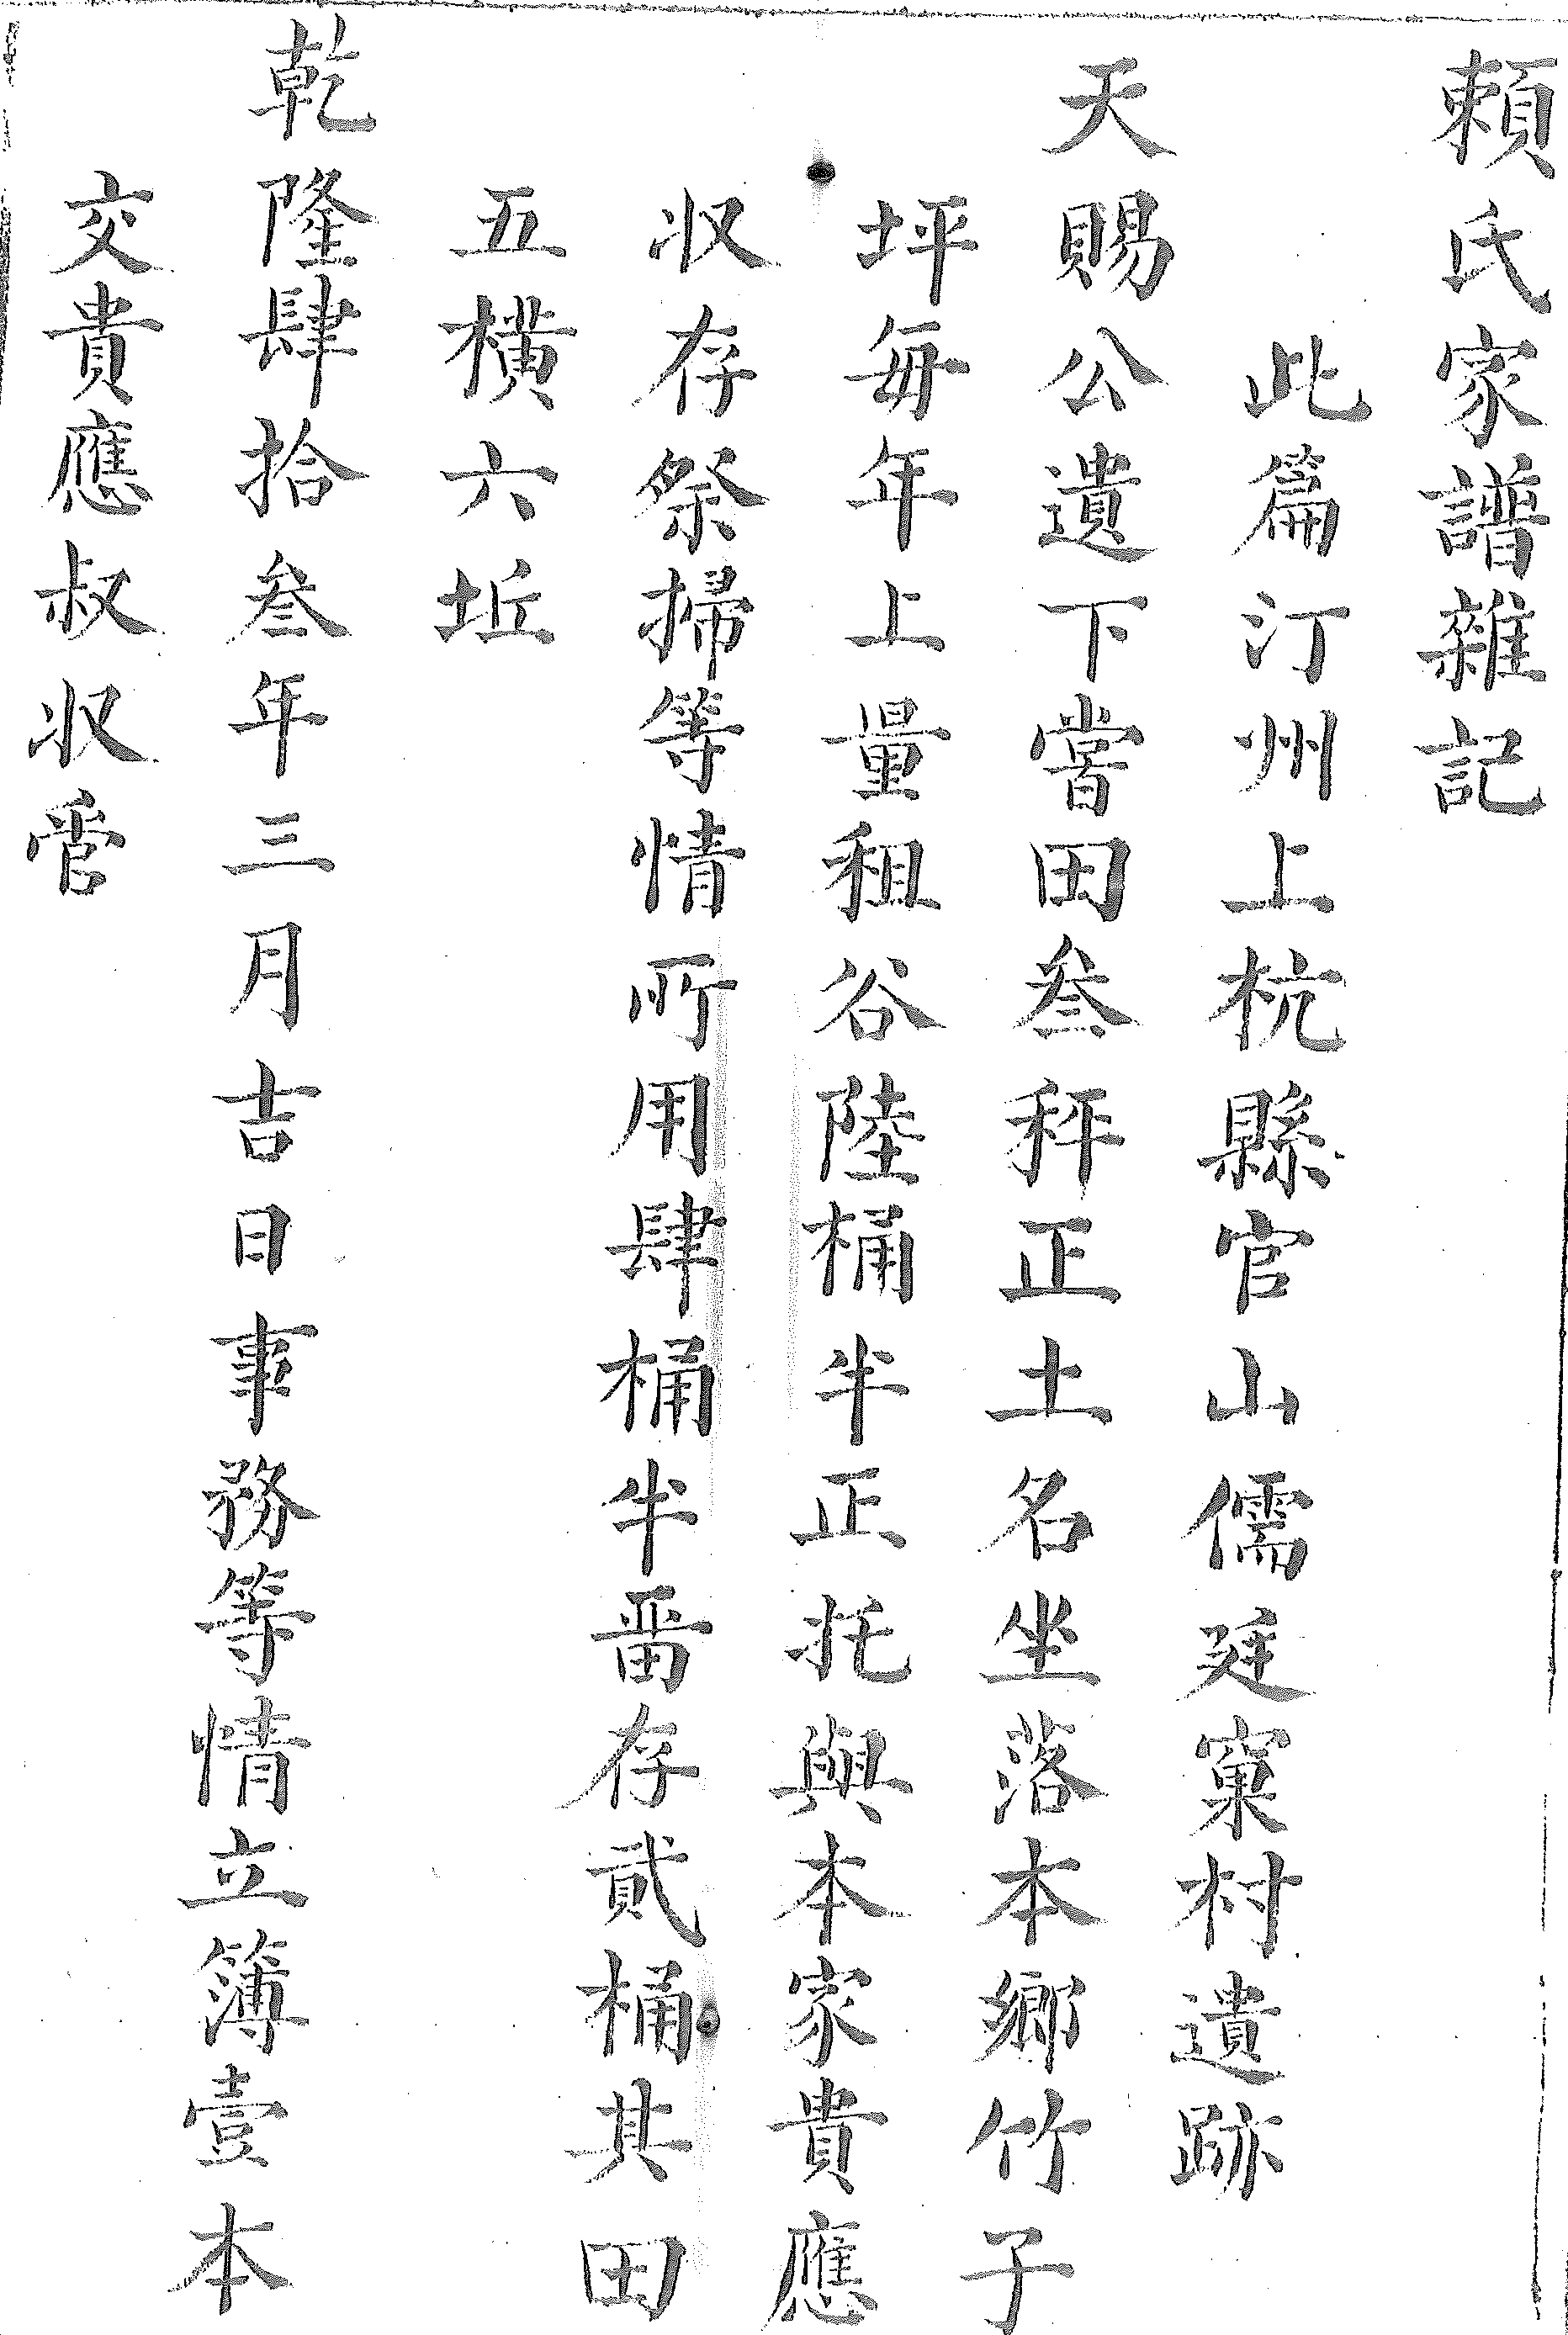 頼氏家譜雜記
此篇汀州上杭縣官山儒廷窠村遺跡
天賜公遺下嘗田叁秤正土名坐落本鄉竹子
坪每年上量租谷陸桶半正托與本家貴應
收存祭掃等情所用肆桶半畨存貳桶其田
五橫六坵
乾隆肆拾叁年三月吉日事務等情立簿壹本
交貴應叔收管